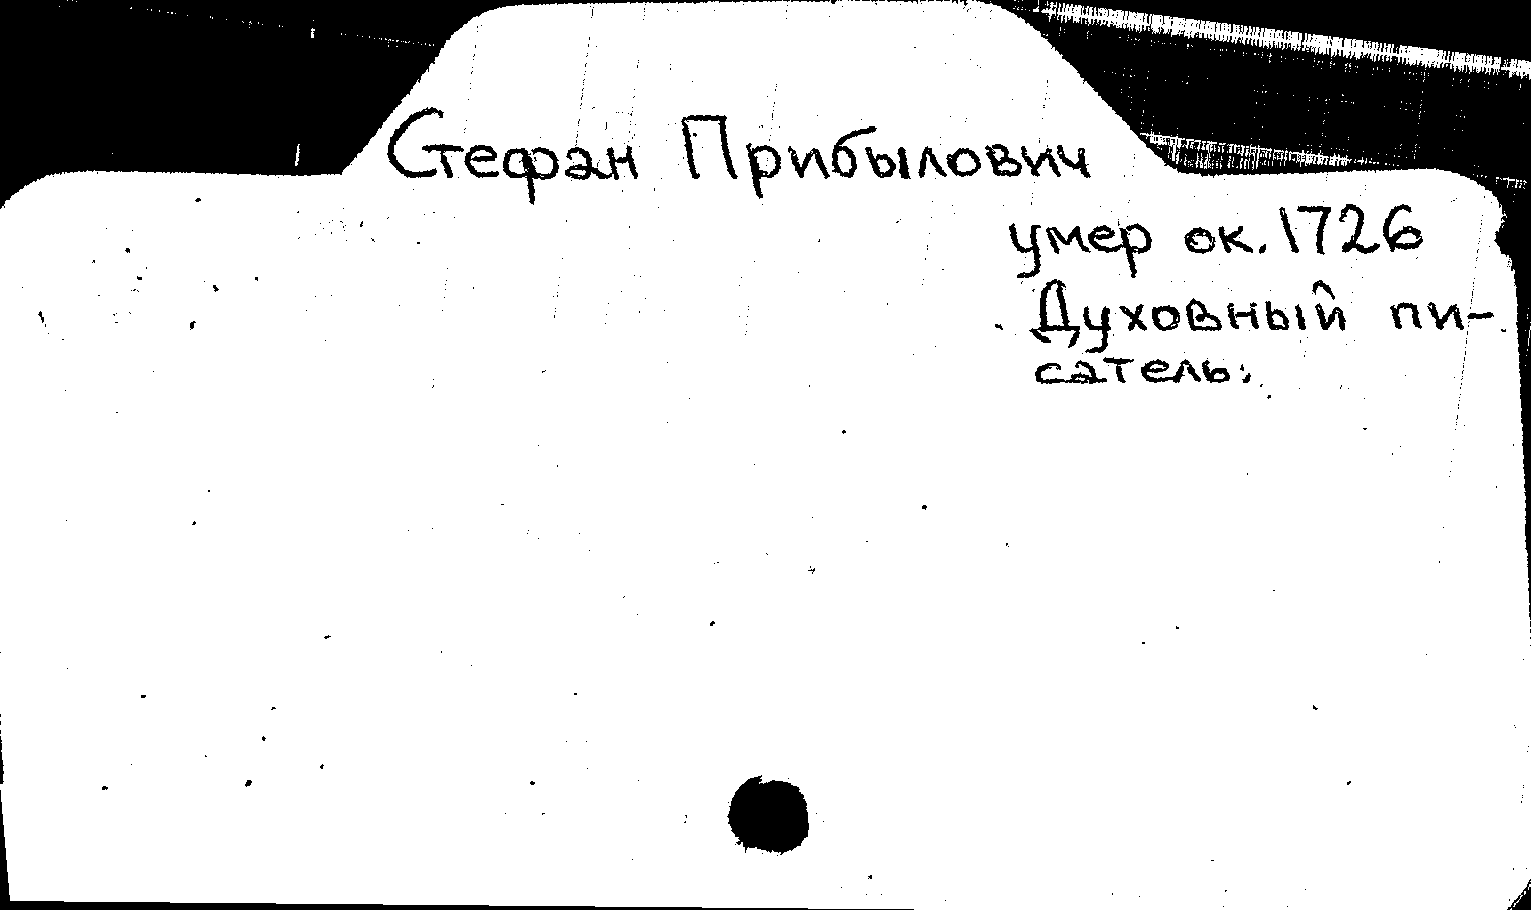 Стефан Прибылович
умер ок. 1726
Духовный пи-
сатель.